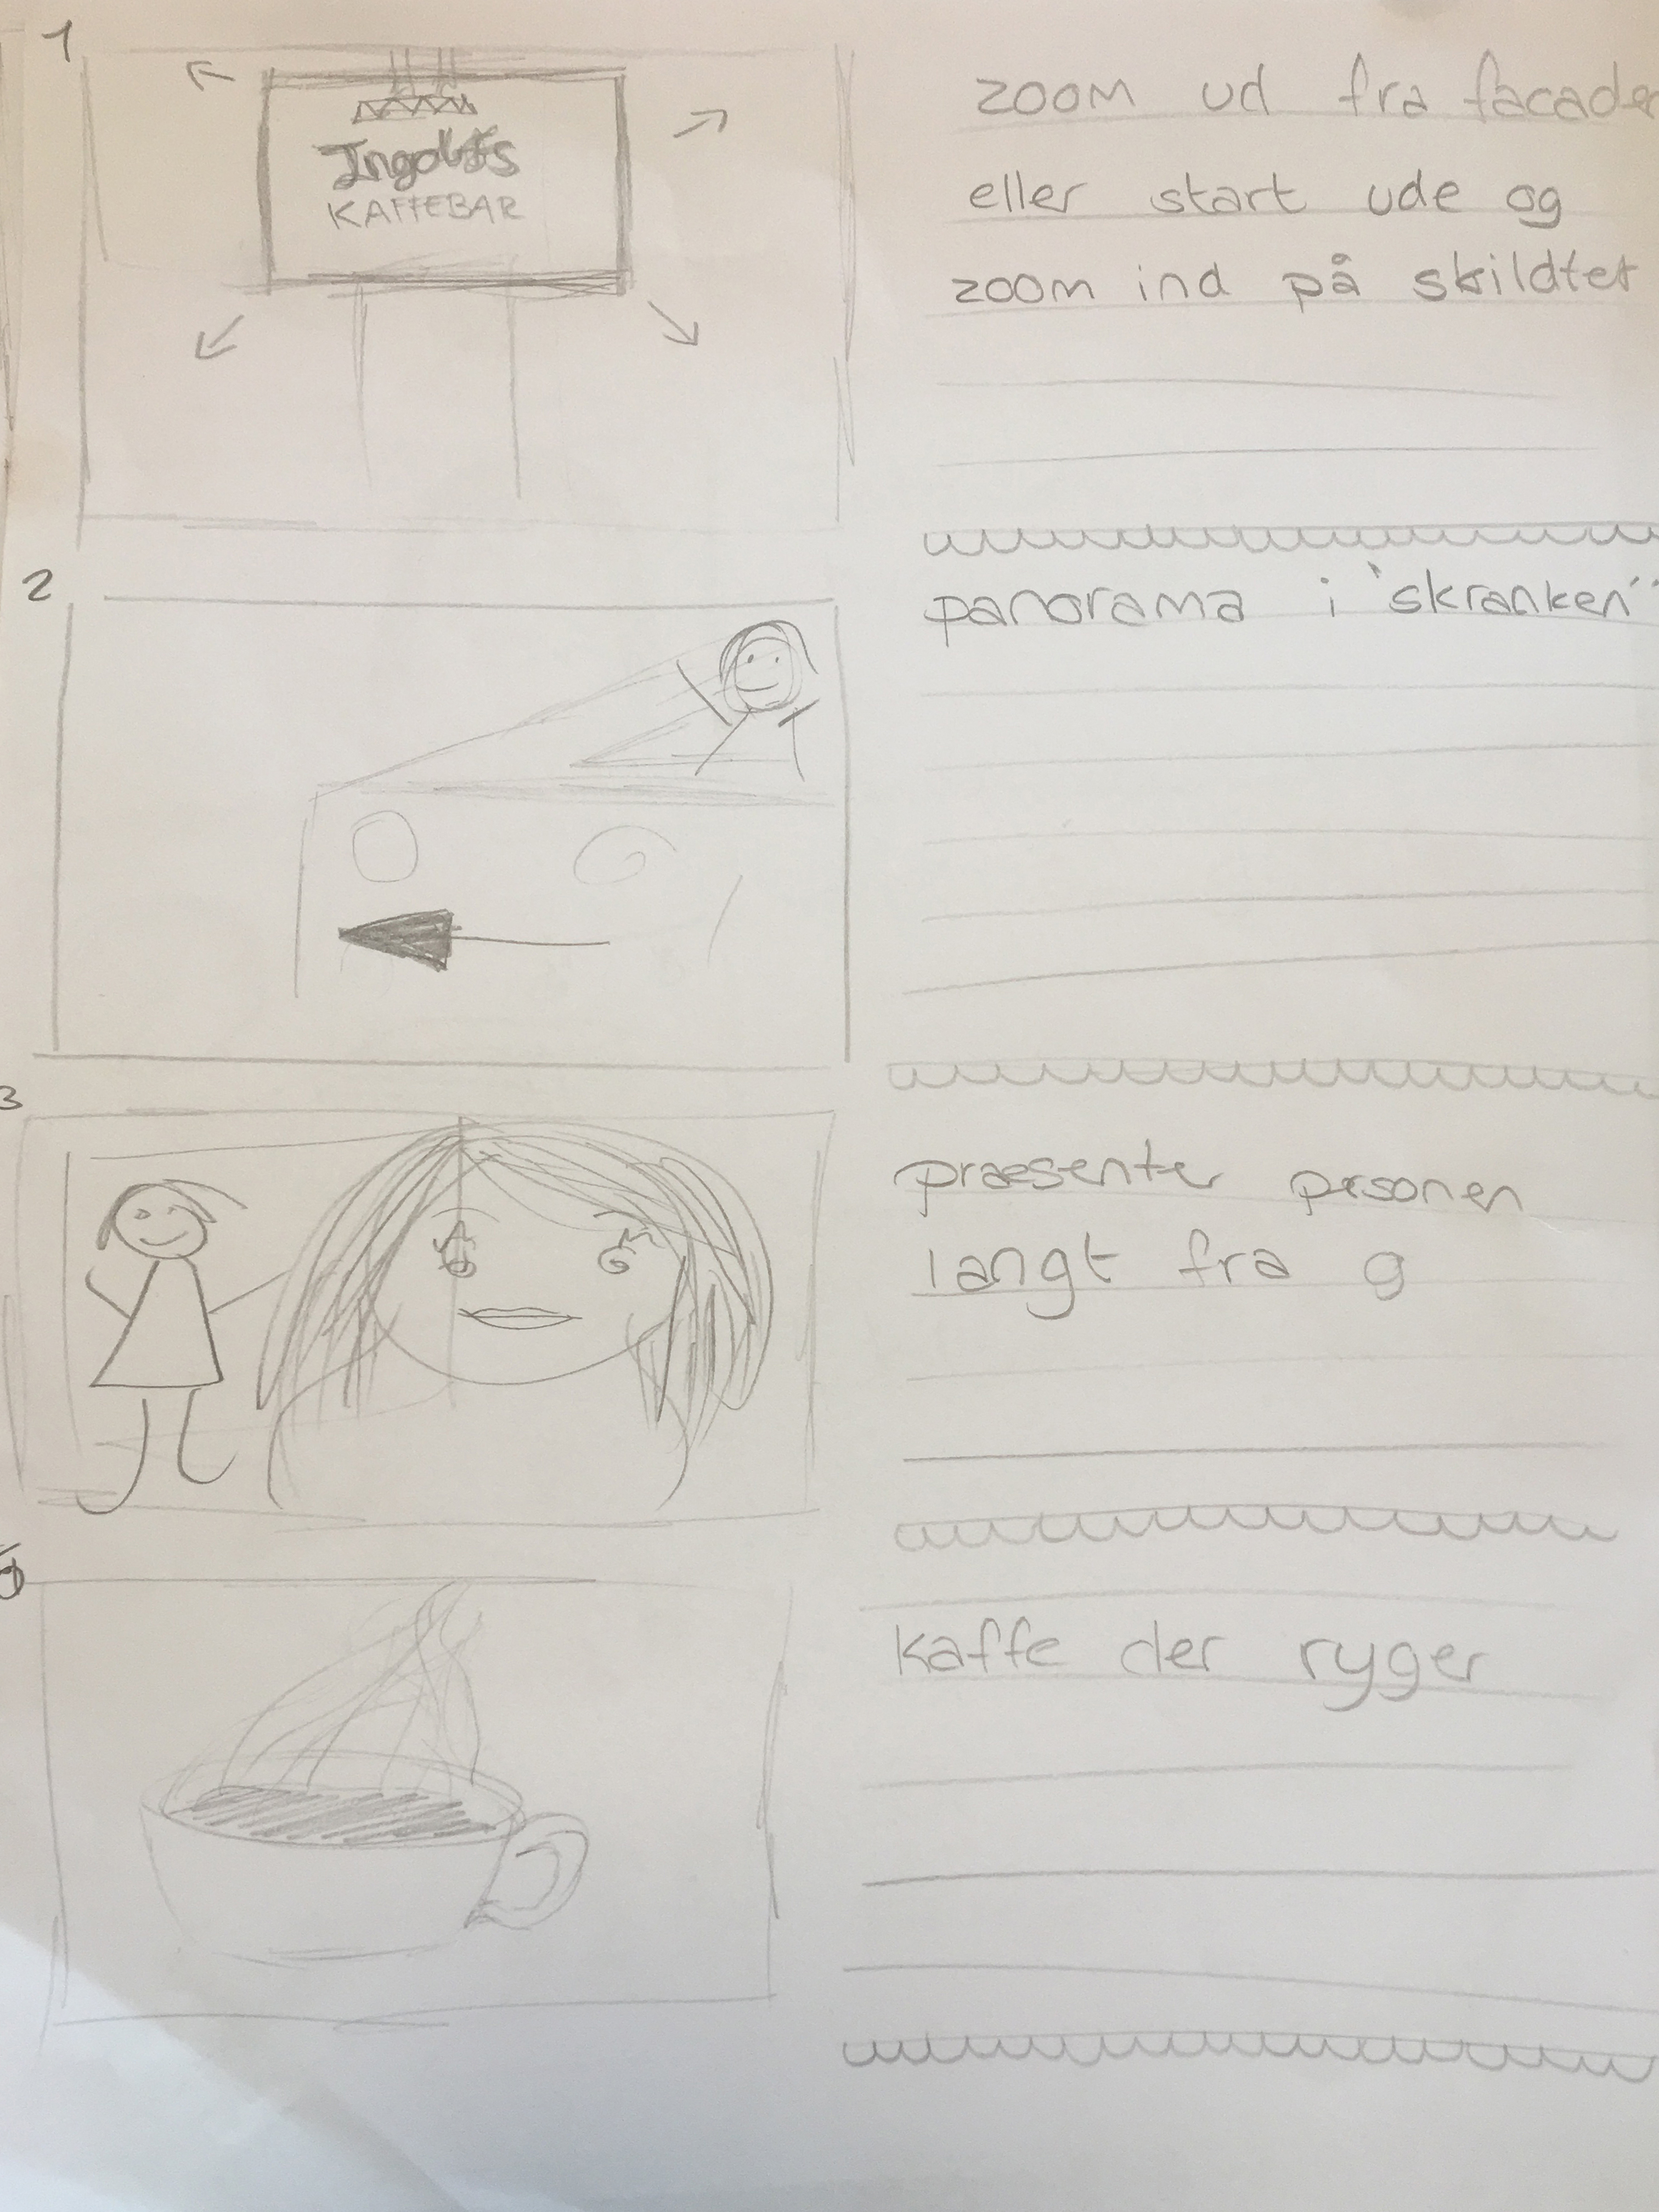 1
Ingolfs
KAFFEBAR
zoom ud fra facaden
eller start ude og
zoom ind på skildtet
2
panorama i "skranken"
3
præsenter prsonen
langt fra g
kaffe der ryger